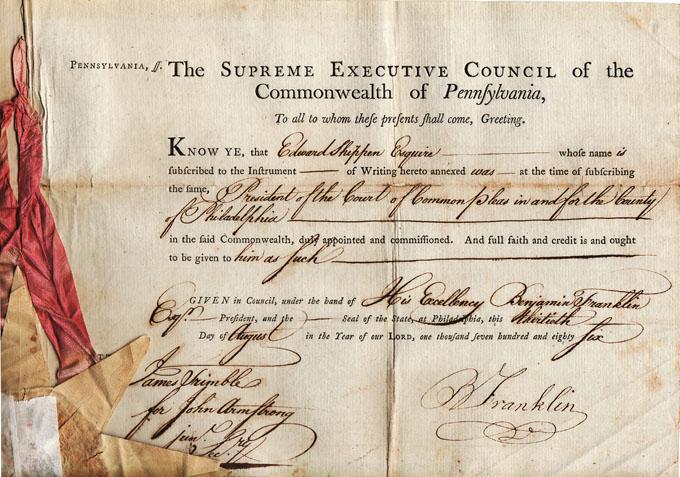 PENNSYLVANIA, ſſ. The SUPREME EXECUTIVE COUNCIL of the
Commonwealth of Pennſylvania,
To all to whom theſe preſents ſhall come, Greeting.
KNOW YE, that Edward Shippen Esquire whose name is
subscribed to the Instrument of Writing hereto annexed was at the time of subscribing
the same, President of the Court of Common pleas in and for the County
of Philadelphia
in the said Commonwealth, duly appointed and commissioned. And full faith and credit is and ought
to be given to him as such
GIVEN in Council, under the hand of His Excellency Benjamin Franklin
Esqr. President, and the Seal of the State, at Philadelphia, this thirtieth
Day of August in the Year of our LORD, one thousand seven hundred and eighty six
James Trimble
for John Armstrong
junr. Secry
B Franklin